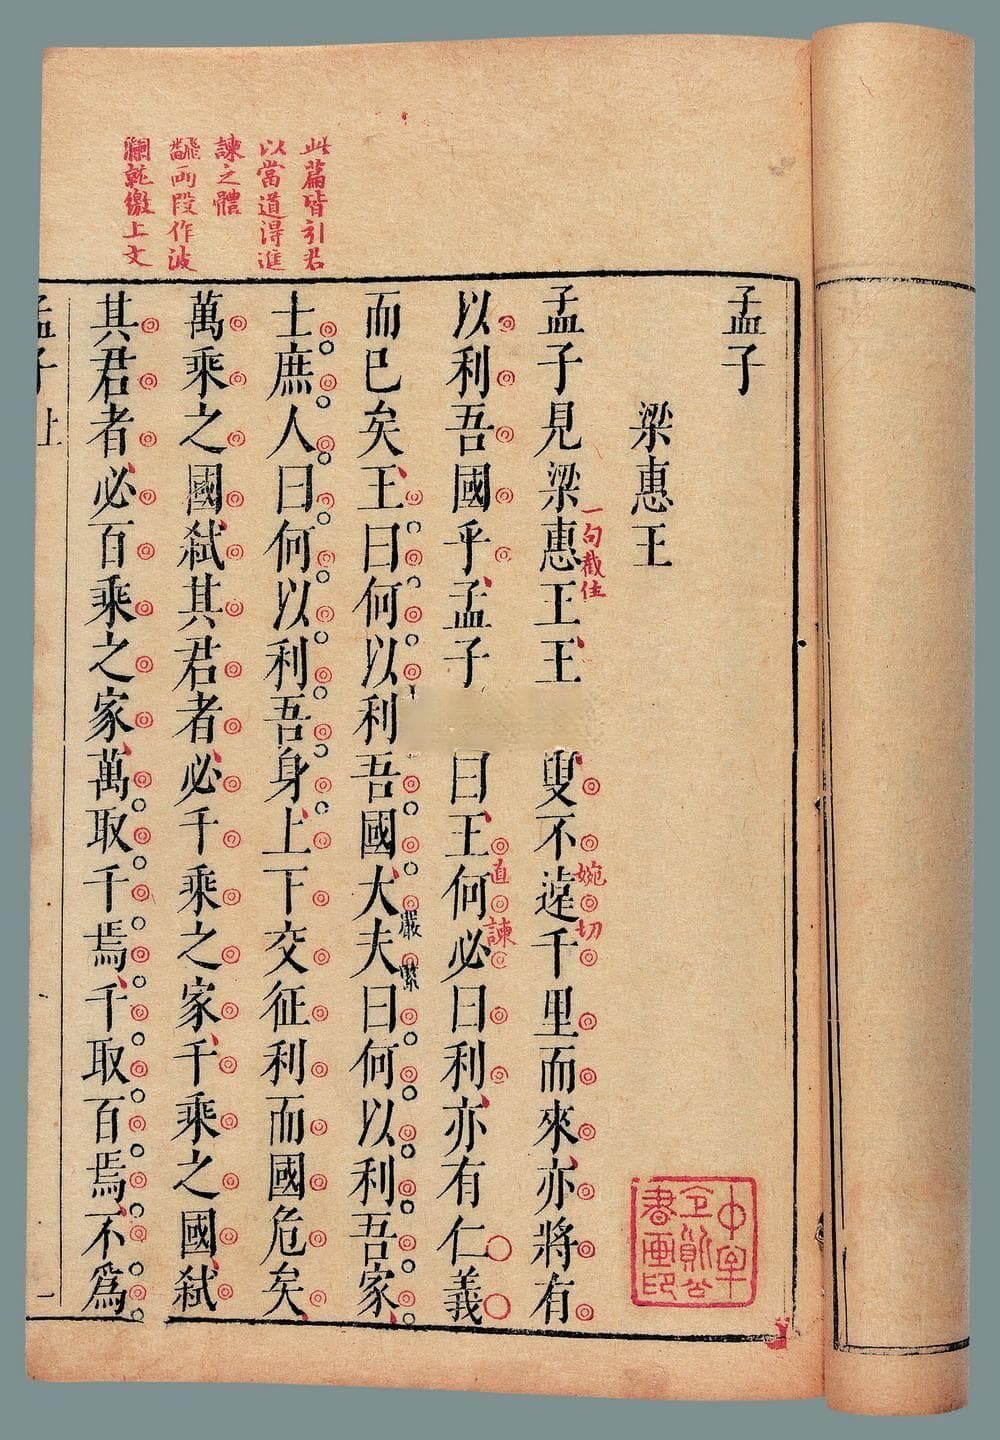 此篇皆引君
以當道得進
諫之體
翻兩段作波
瀾就繳上文
孟子
梁惠王
孟子見梁惠王王 叟不遠千里而來亦將有
一句截住
婉切
以利吾國乎孟子 曰王何必曰利亦有仁義
直諫
而已矣王曰何以利吾國大夫曰何以利吾家
嚴緊
士庶人曰何以利吾身上下交征利而國危矣
萬乘之國弒其君者必千乘之家千乘之國弒
其君者必百乘之家萬取千焉千取百焉不爲
孟子上
一
書畫印